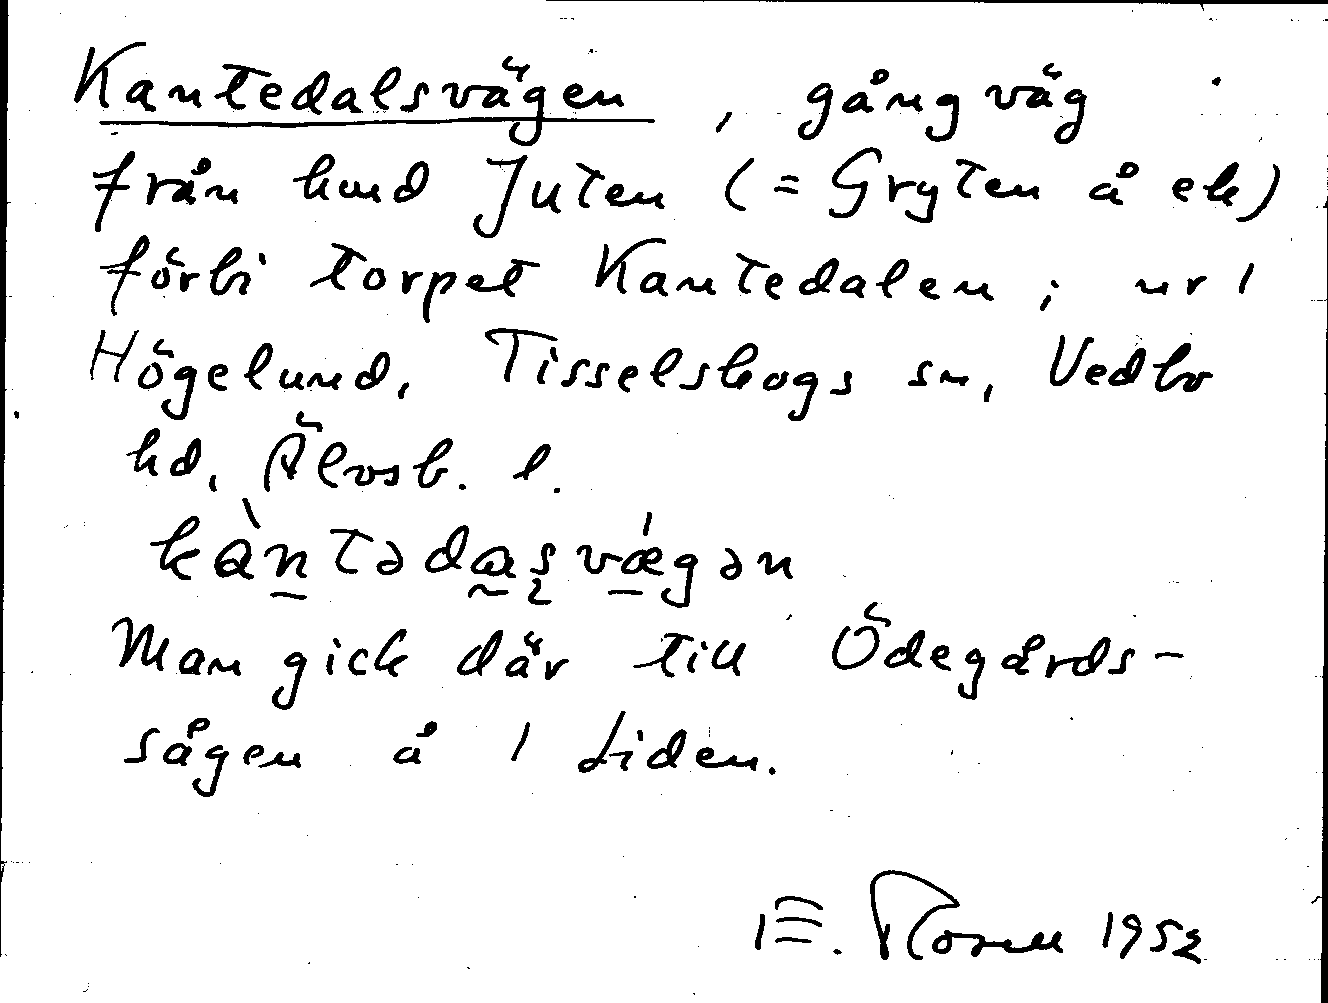 Kantedalsvägen, gångväg
från hmd Juten (= Gryten å ek)
förbi torpet Kantedalen; nr 1
Högelund, Tisselskogs sn, Vedbo
hd, Älvsb. l.
kàntədasvǽgən
Man gick där till Ödegårds-
sågen å 1 Liden.
E. 1952